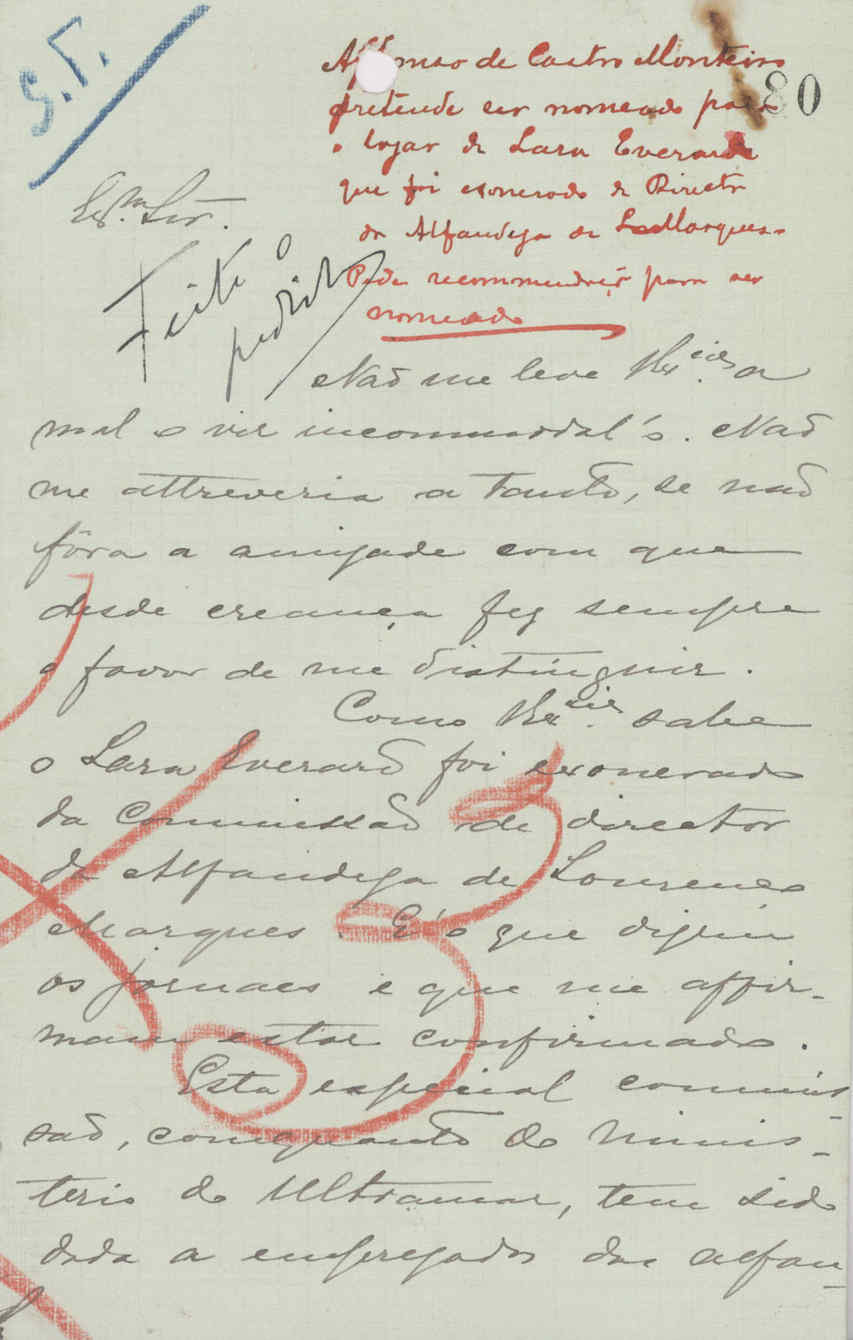 S.T.
80
Affonso de Castro Monteiro
pretende ser nomeado para
o logar de Lara Everard
que foi exonerado de Director
da Alfandega de L. Marques.
Pede recommendação para ser
nomeado
Ex.mo Snr.
Feito o
pedido
Não me leve V. Ex.cia a
mal o vir incommodal'o. Não
me attreveria a tanto, se não
fôra a amizade com que
desde creança fez sempre
o favor de me distinguir.
Como V. Ex.cia sabe
o Lara Everard foi exonerado
da commissão de director
da Alfandega de Lourenço
Marques. É o que dizem
os jornaes e que me affir-
mam estar confirmado.
Esta especial commis-
são, comquanto do Minis-
terio do Ultramar, tem sido
dada a empregados das alfan-